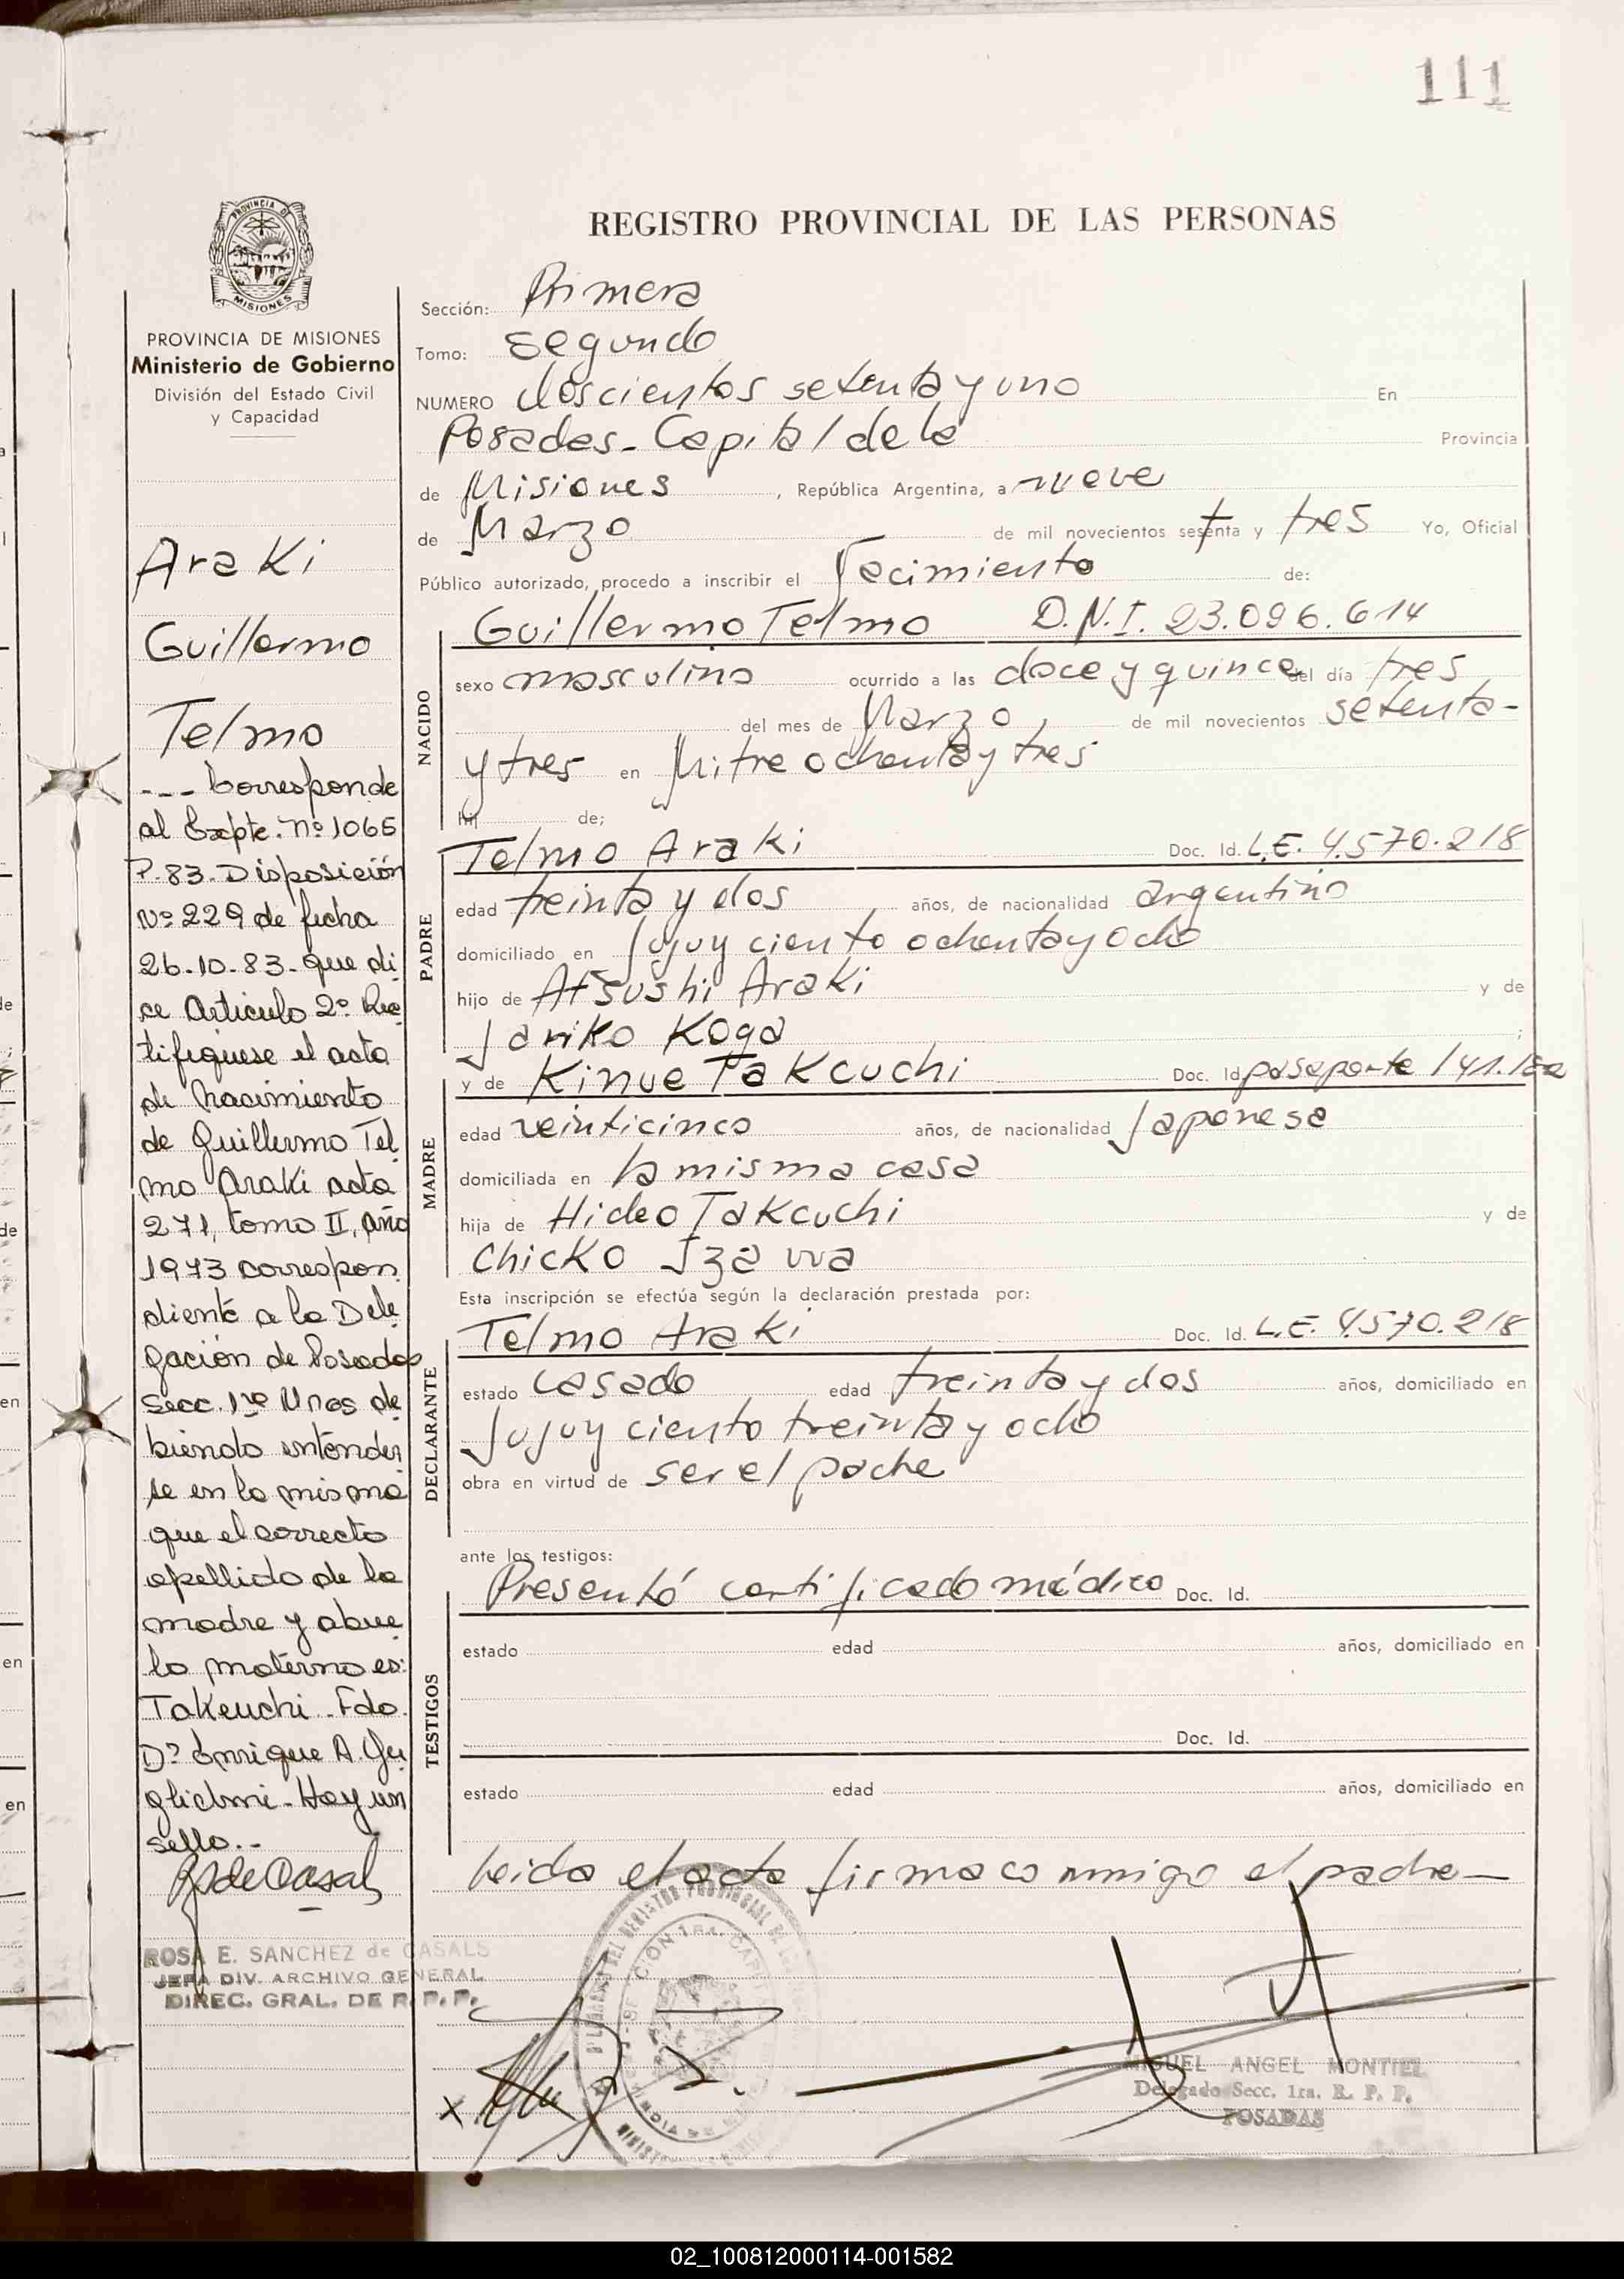 111
PROVINCIA DE
MISIONES
PROVINCIA DE MISIONES
Ministerio de Gobierno
División del Estado Civil
y Capacidad
Araki
Guillermo
Telmo
--- Corresponde
al Expte. Nº 1065
P.83. Disposición
Nº 229 de fecha
26.10.83. que di
ce Articulo 2º Rec
tifiquese el acta
de Nacimiento
de Guillermo Tel
mo Araki acta
271, tomo II, año
1973 correspon
diente a la Dele
gación de Posadas
Secc. 1ra Mnes de
biendo entender
se en la misma
que el correcto
apellido de la
madre y abue
lo materno es:
Takeuchi. Fdo.
Dº Enrique A. Gu
glielmi - Hay un
sello.-
ROSA E. SANCHEZ de CASALS
JEFA DIV. ARCHIVO GENERAL
DIREC. GRAL. DE R. P. P.
REGISTRO PROVINCIAL DE LAS PERSONAS
Sección: Primera
Tomo: segundo
NUMERO doscientos setenta y uno En
Posadas - Capital de la Provincia
de Misiones, República Argentina, a nueve
de Marzo de mil novecientos setenta y tres Yo, Oficial
Público autorizado, procedo a inscribir el Nacimiento de:
NACIDO
Guillermo Telmo D.N.I. 23.096.614
sexo masculino ocurrido a las doce y quince del día tres
del mes de Marzo, de mil novecientos setenta-
y tres en Mitre ochenta y tres
hij de;
PADRE
Telmo Araki Doc. Id. L.E. 4.570.218
edad treinta y dos años, de nacionalidad argentino
domiciliado en Jujuy ciento ochenta y ocho
hijo de Atsushi Araki y de
Jariko Koga ;
MADRE
y de Kinue Takcuchi Doc. Id. pasaporte 141.
edad veinticinco años, de nacionalidad Japonesa
domiciliada en la misma casa
hija de Hideo Takcuchi y de
Chicko Izawa
Esta inscripción se efectúa según la declaración prestada por:
DECLARANTE
Telmo Araki Doc. Id. L.E. 4.570.218
estado casado edad treinta y dos años, domiciliado en
Jujuy ciento treinta y ocho
obra en virtud de ser el padre
ante los testigos:
TESTIGOS
Presentó certificado médico Doc. Id.
estado edad años, domiciliado en
Doc. Id.
estado edad años, domiciliado en
Leida el acta firma conmigo el padre-
MIGUEL ANGEL MONTIEL
Delegado Secc. 1ra. R. P. P.
POSADAS
02_100812000114-001582